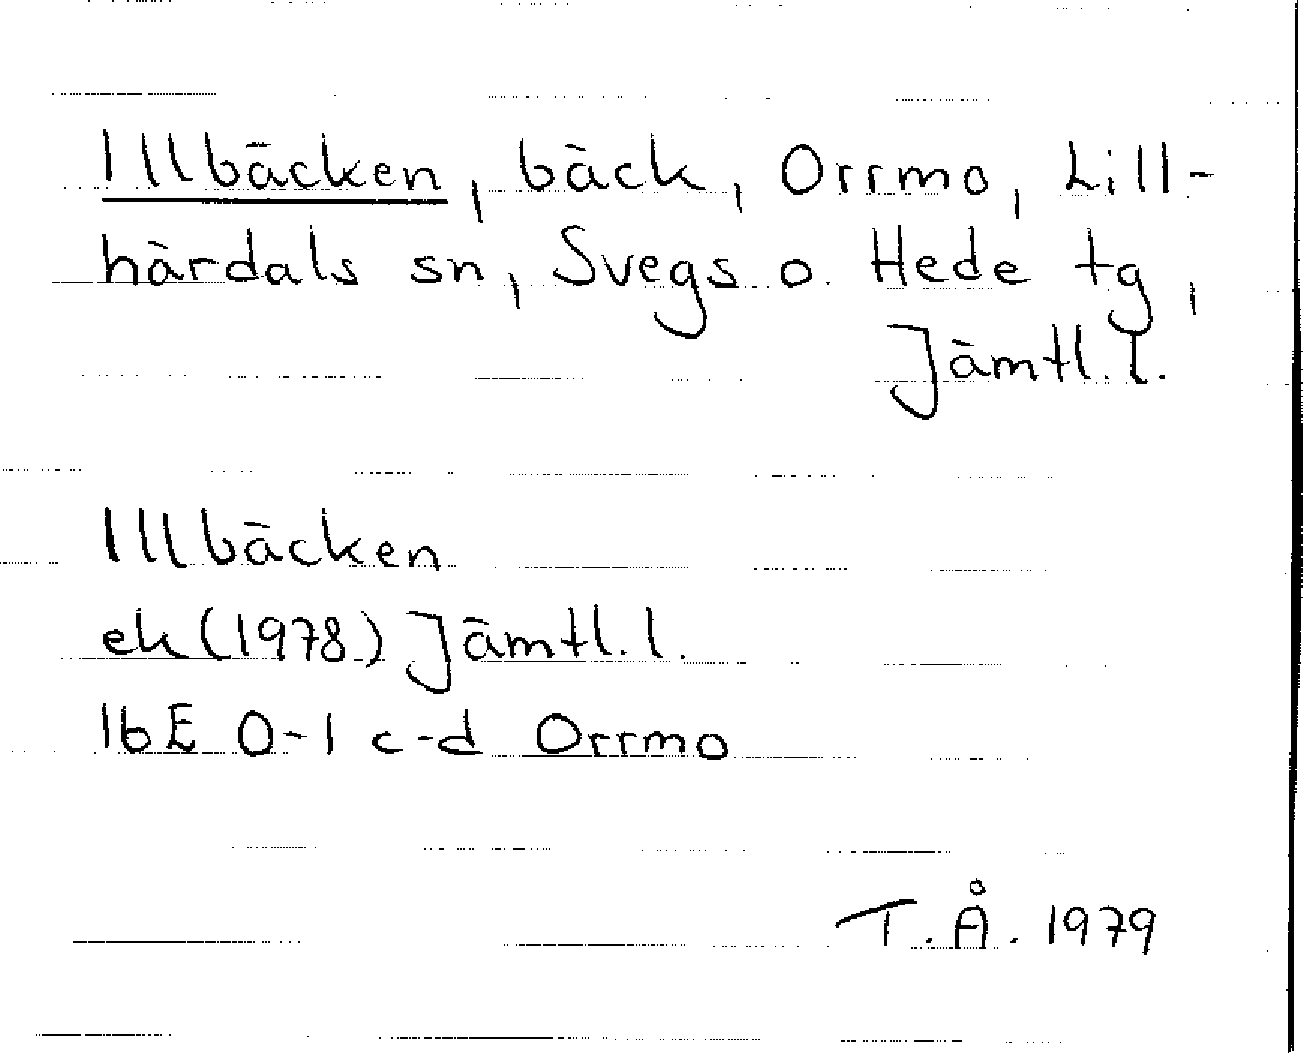 Illbäcken, bäck, Orrmo, Lill-
härdals sn, Svegs o Hede tg,
Jämtl. l.
Illbäcken
ek (1978) Jämtl. l.
16E 0-1 c-d Orrmo
T.Å. 1979